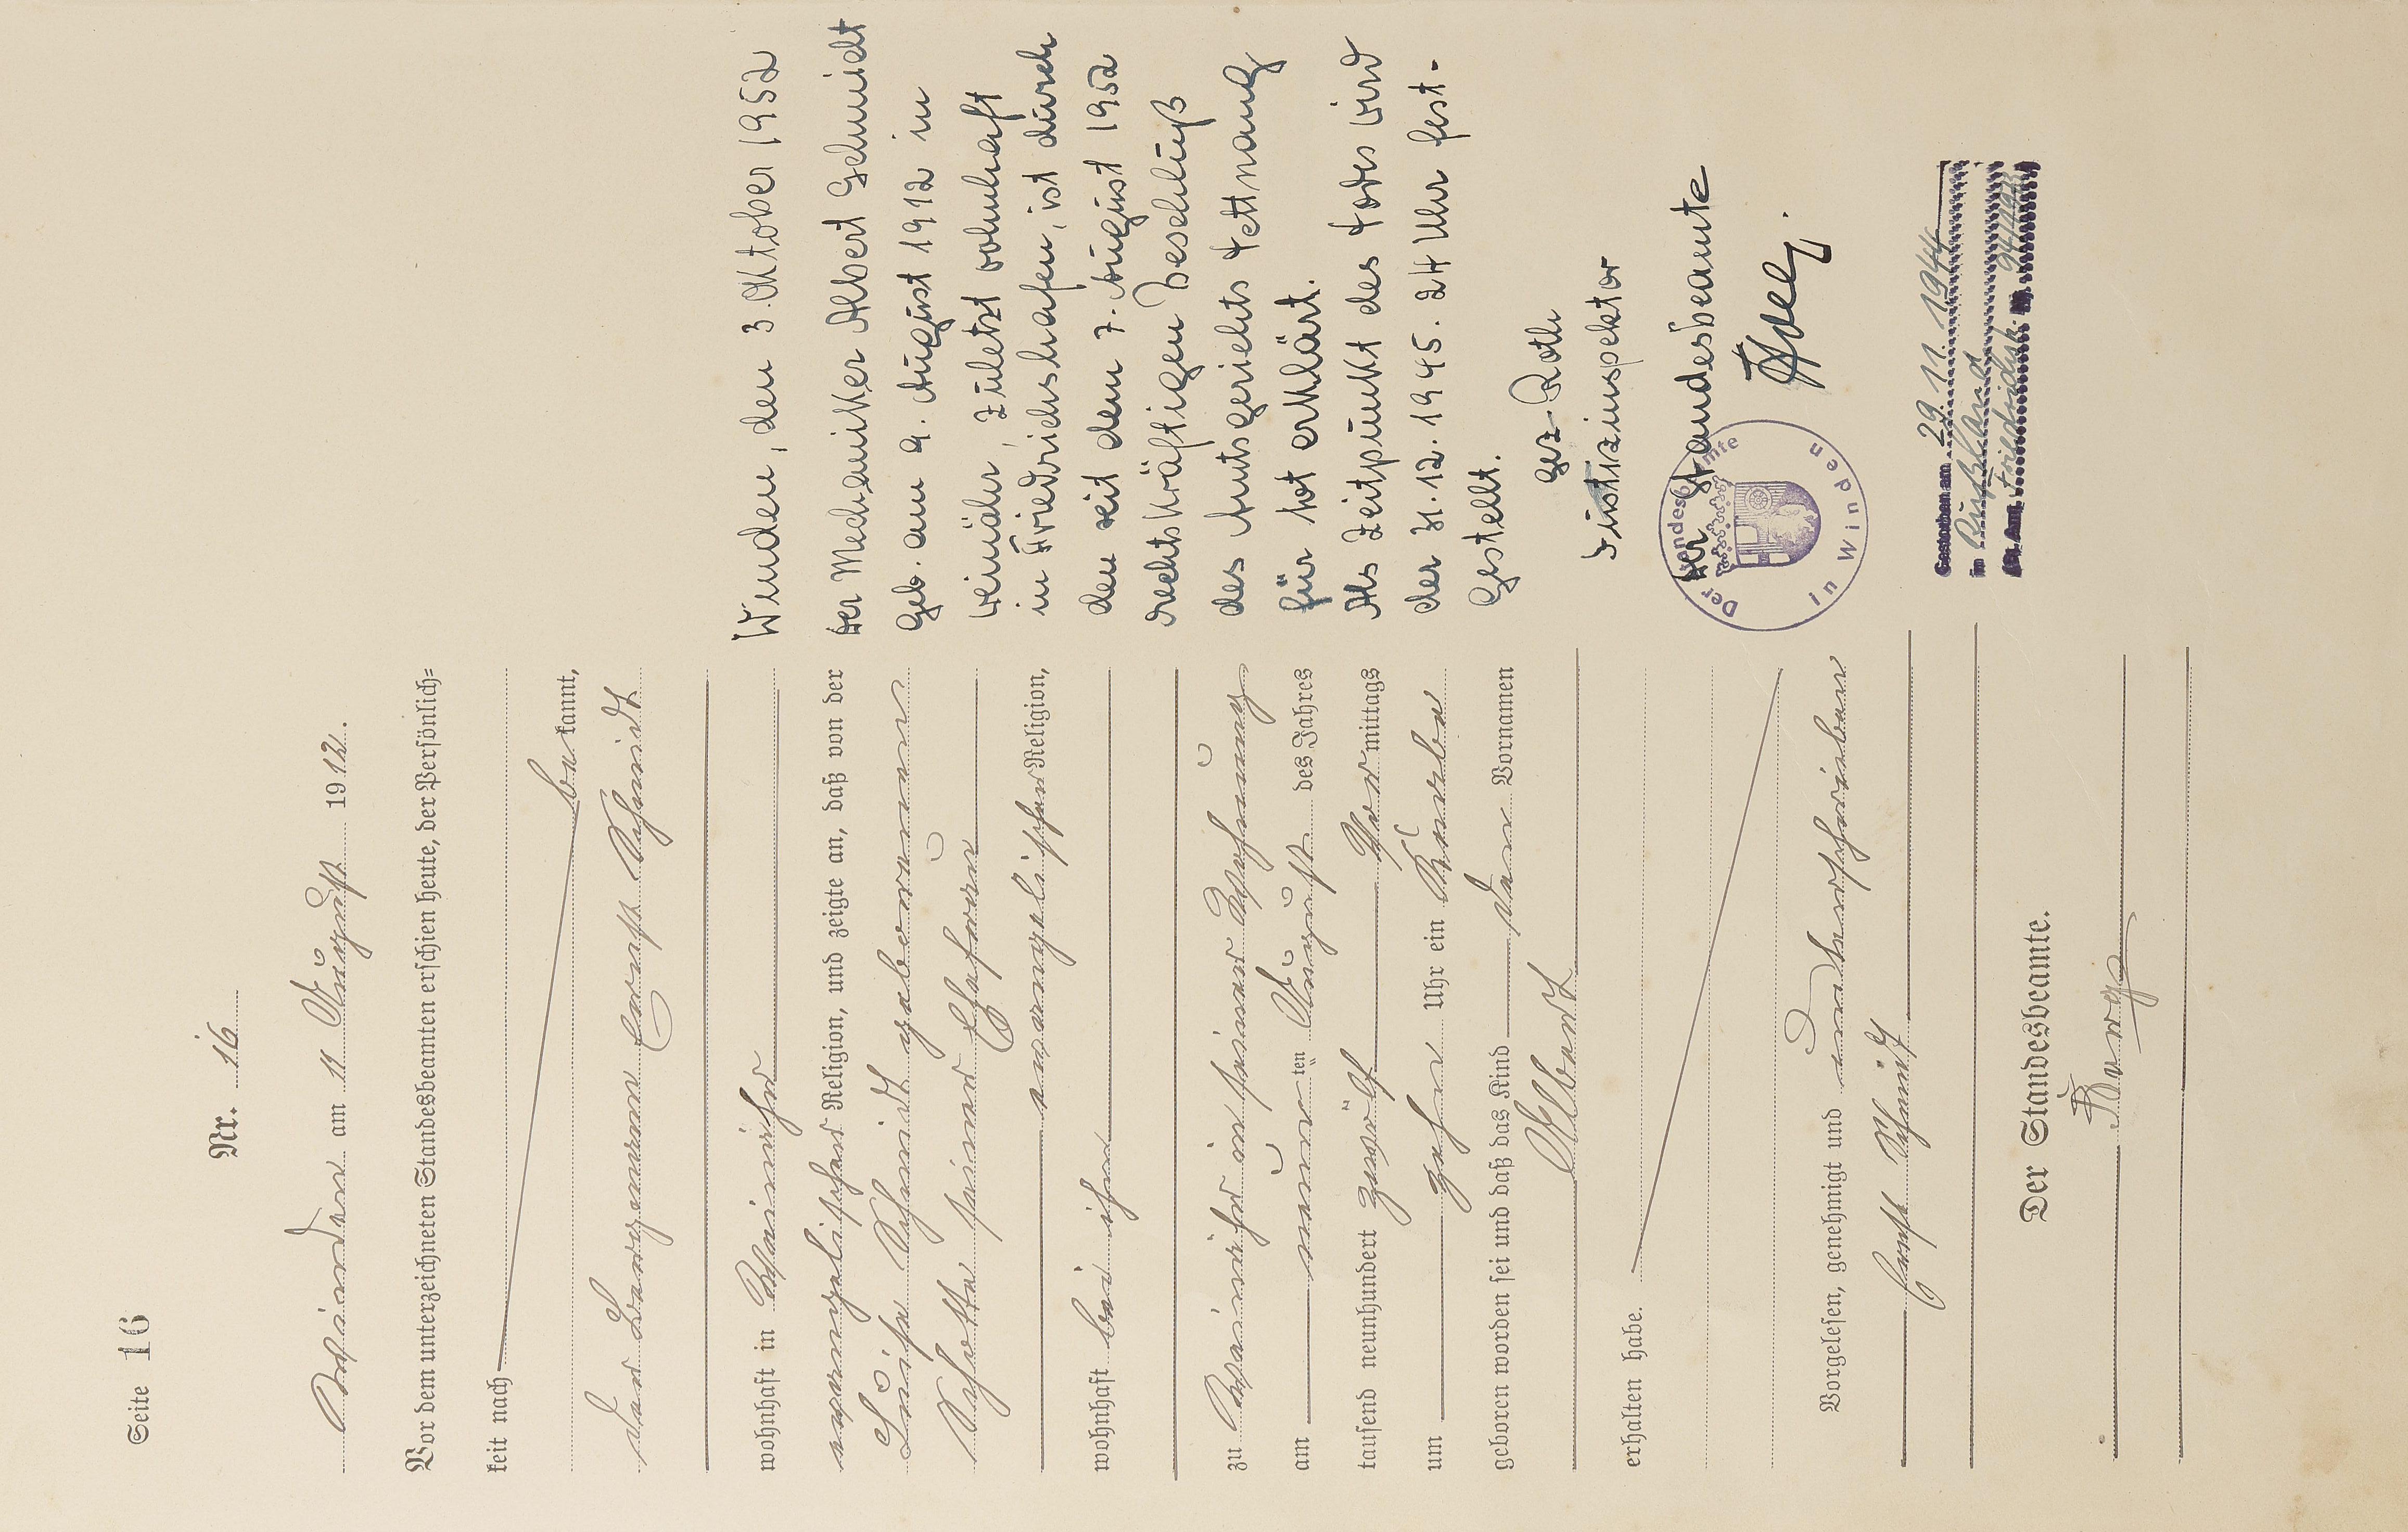 Seite 16
Nr. 16
Winden am 11 August 1912.
Vor dem unterzeichneten Standesbeamten erschien heute, der Persönlich=
keit nach
be kannt,
der Bergmann Ernst Schmidt
wohnhaft in Weinähr
evangelischer Religion, und zeigte an, daß von der
Luise Schmidt geborenen
Schotte seiner Ehefrau
evangelischer Religion,
wohnhaft bei ihm
zu Weinähr in seiner Wohnung
am neunten August des Jahres
tausend neunhundert zwölf Vormittags
um zehn Uhr ein Knabe
geboren worden sei und daß das Kind den Vornamen
Albert
erhalten habe.
Vorgelesen, genehmigt und unterschrieben
Ernst Schmidt
Der Standesbeamte.
Winden, den 3. Oktober 1952
Der Mechaniker Albert Schmidt
geb. am 9. August 1912 in
Weinähr, zuletzt wohnhaft
in Friedrichshafen, ist durch
den seit dem 7. August 1952
rechtskräftigen Beschluß
des Amtsgerichts Tettnang
für tot erklärt.
Als Zeitpunkt des Todes wird
der 31.12.1945. 24 Uhr fest-
gestellt.
gez. Roth
Justizinspektor
Der Standesbeamte
Der Standesbeamte
in Winden
Gestorben am 29.11.1944
in Rußland